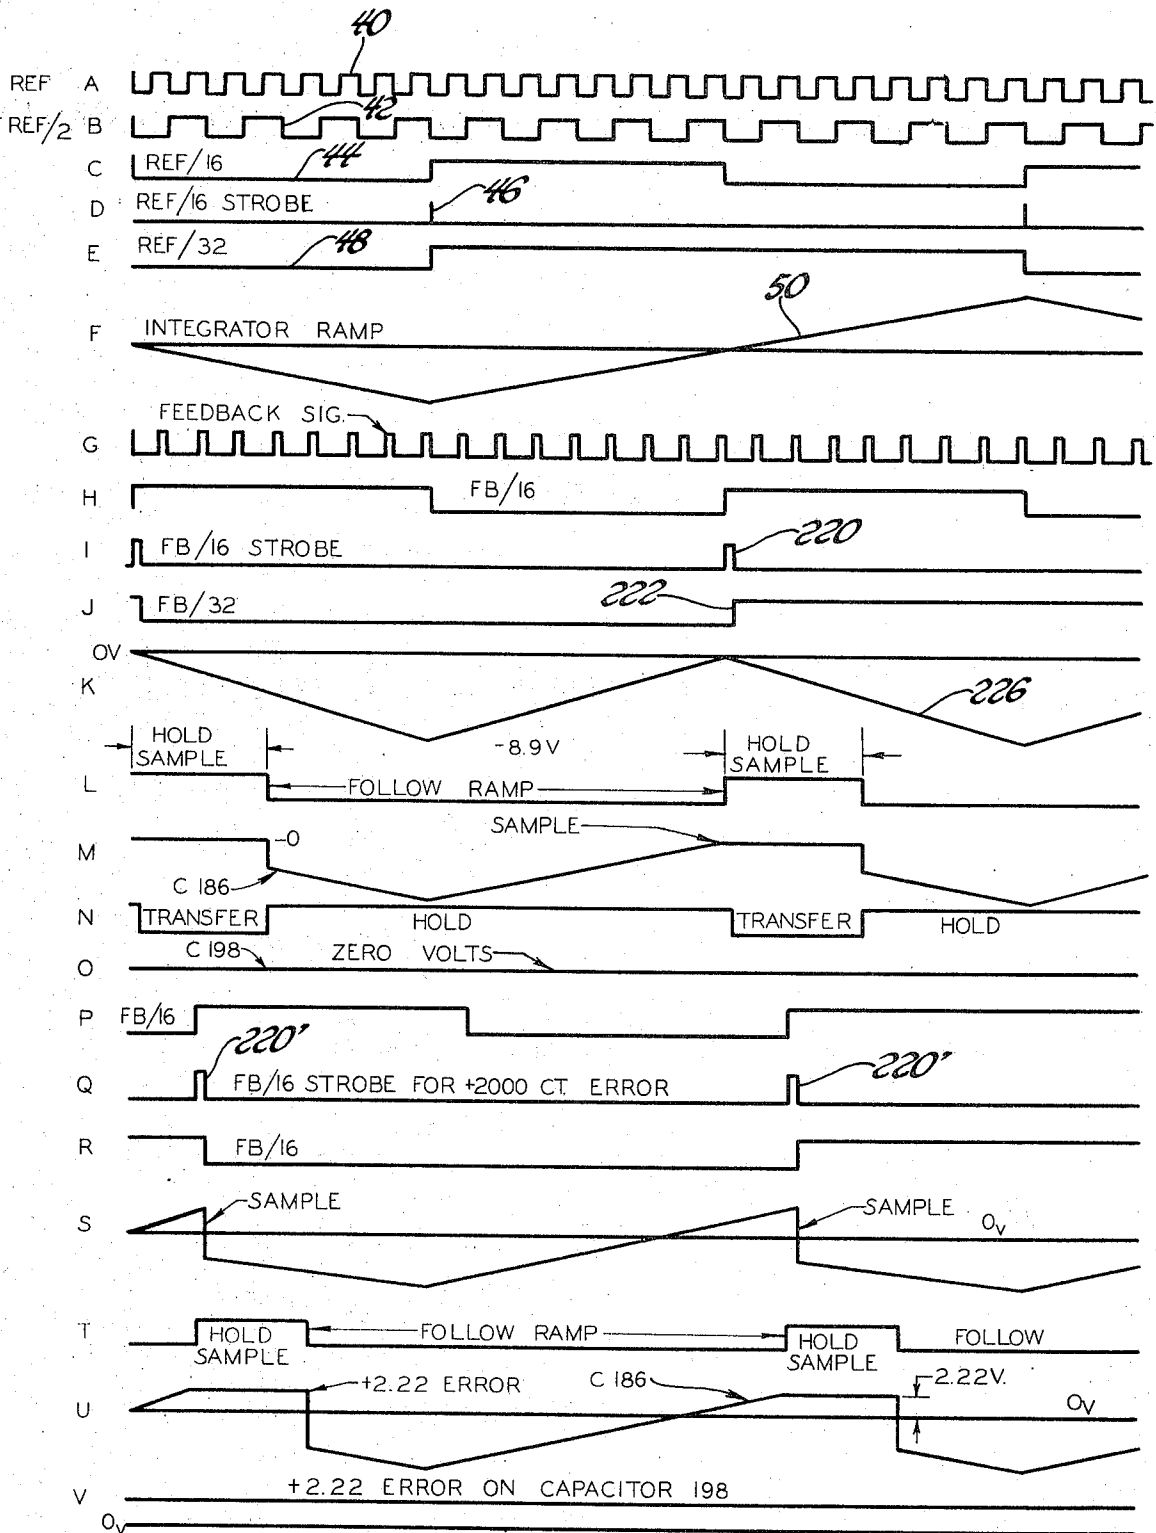 40
REF A
REF/2 B 42
C REF/16 44
D REF/16 STROBE 46
E REF/32 48
50
F INTEGRATOR RAMP
FEEDBACK SIG.
G
H FB/16
I FB/16 STROBE 220
J FB/32 222
0V
K 226
HOLD SAMPLE -8.9V HOLD SAMPLE
L FOLLOW RAMP
SAMPLE
M -0
C 186
N TRANSFER HOLD TRANSFER HOLD
C 198 ZERO VOLTS
O
P FB/16
220'
Q FB/16 STROBE FOR +2000 CT. ERROR 220'
R FB/16
SAMPLE SAMPLE
S 0V
T HOLD SAMPLE FOLLOW RAMP HOLD SAMPLE FOLLOW
+2.22 ERROR C 186 2.22V.
U 0V
V +2.22 ERROR ON CAPACITOR 198
0V